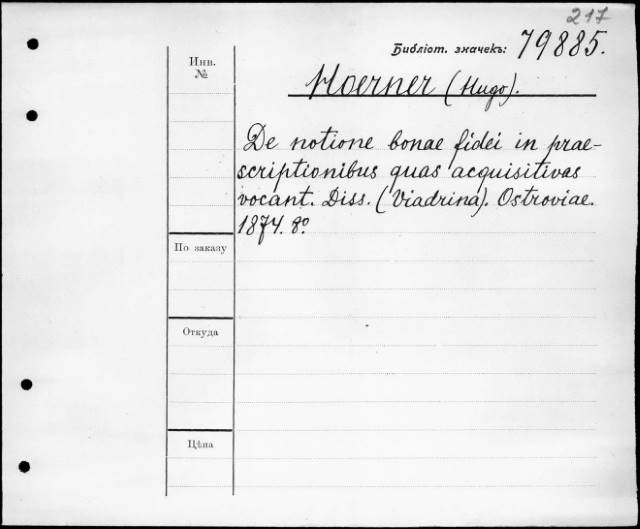 217
Библіот. значекъ: 79885.
Инв.
№
Hoerner (Hugo).
De notione bonae fidei in prae-
scriptionibus quas acquisitivas
vocant. Diss. (Viadrina). Ostroviae.
1874. 8º
По заказу
Откуда
Цѣна